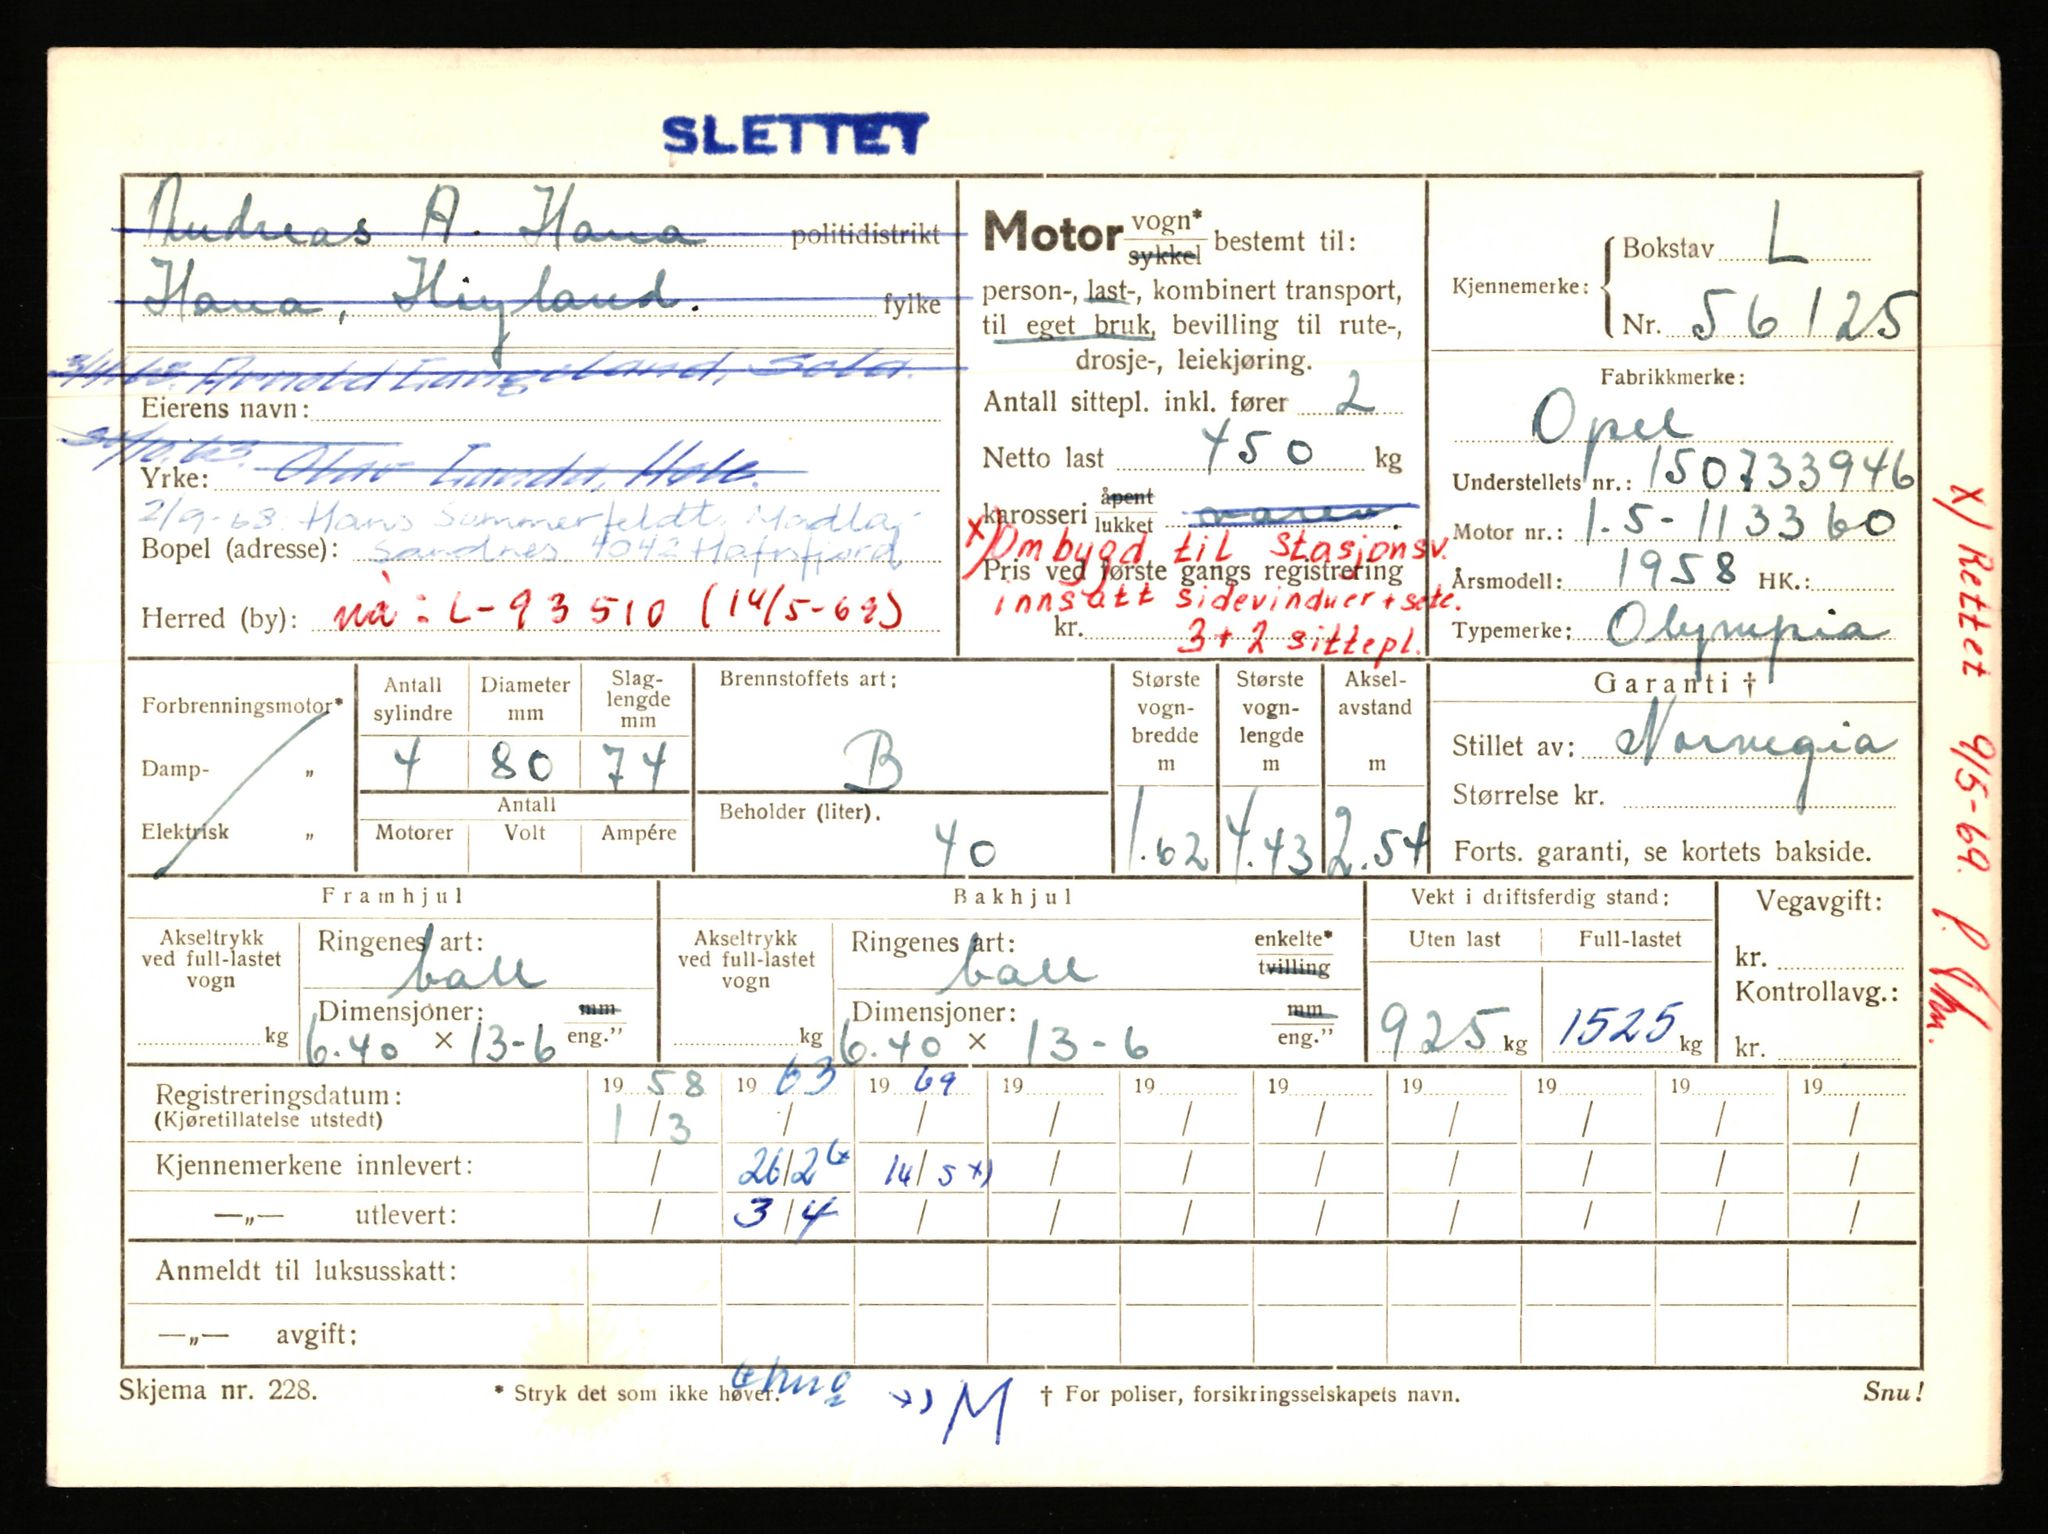 SLETTET
Andreas A. Hana politidistrikt
Hana, Høyland. fylke
Arnold Langeland, Sola.
Eierens navn:
Yrke: Olav Lunde, Hole.
2/9-68. Hans Sømmerfeldt, Madla,
Bopel (adresse): Sandnes 4042 Hafrsfjord
Herred (by): nå: L-93510 (14/5-69)
Motor vogn* sykkel bestemt til:
person-, last-, kombinert transport,
til eget bruk, bevilling til rute-,
drosje-, leiekjøring.
Antall sittepl. inkl. fører 2
Netto last 450 kg
karosseri åpent lukket varev.
x) Ombygd til Stasjonsv.
Pris ved første gangs registrering
innsatt sidevinduer + sete.
kr. 3+2 sittepl.
Kjennemerke: Bokstav L
Nr. 56125
Fabrikkmerke:
Opel
Understellets nr.: 150733946
Motor nr.: 1.5-113360
Årsmodell: 1958 HK.:
Typemerke: Olympia
x) Rettet 9/5-69.
Forbrenningsmotor*
Damp- „
Elektrisk „
Antall sylindre 4
Diameter mm 80
Slag-lengde mm 74
Antall
Motorer Volt Ampére
Brennstoffets art:
B
Beholder (liter).
40
Største vogn-bredde m 1.62
Største vogn-lengde m 4.43
Aksel-avstand m 2.54
Garanti †
Stillet av: Norvegia
Størrelse kr.
Forts. garanti, se kortets bakside.
Framhjul
Akseltrykk ved full-lastet vogn kg
Ringenes art:
ball
Dimensjoner: mm
6.40 × 13-6 eng.”
Bakhjul
Akseltrykk ved full-lastet vogn kg
Ringenes art: enkelte*
ball tvilling
Dimensjoner: mm
6.40 × 13-6 eng.”
Vekt i driftsferdig stand:
Uten last Full-lastet
925 kg 1525 kg
Vegavgift:
kr.
Kontrollavg.:
kr.
Registreringsdatum: 19 58 19 63 19 69 19 19 19 19 19 19 19
(Kjøretillatelse utstedt) 1/3 / / / / / / / / /
Kjennemerkene innlevert: / 26/2 14/5 x) / / / / / / /
—„— utlevert: / 3/4 / / / / / / / /
Anmeldt til luksusskatt:
—„— avgift:
Skjema nr. 228. * Stryk det som ikke høver. x) M † For poliser, forsikringsselskapets navn. Snu!